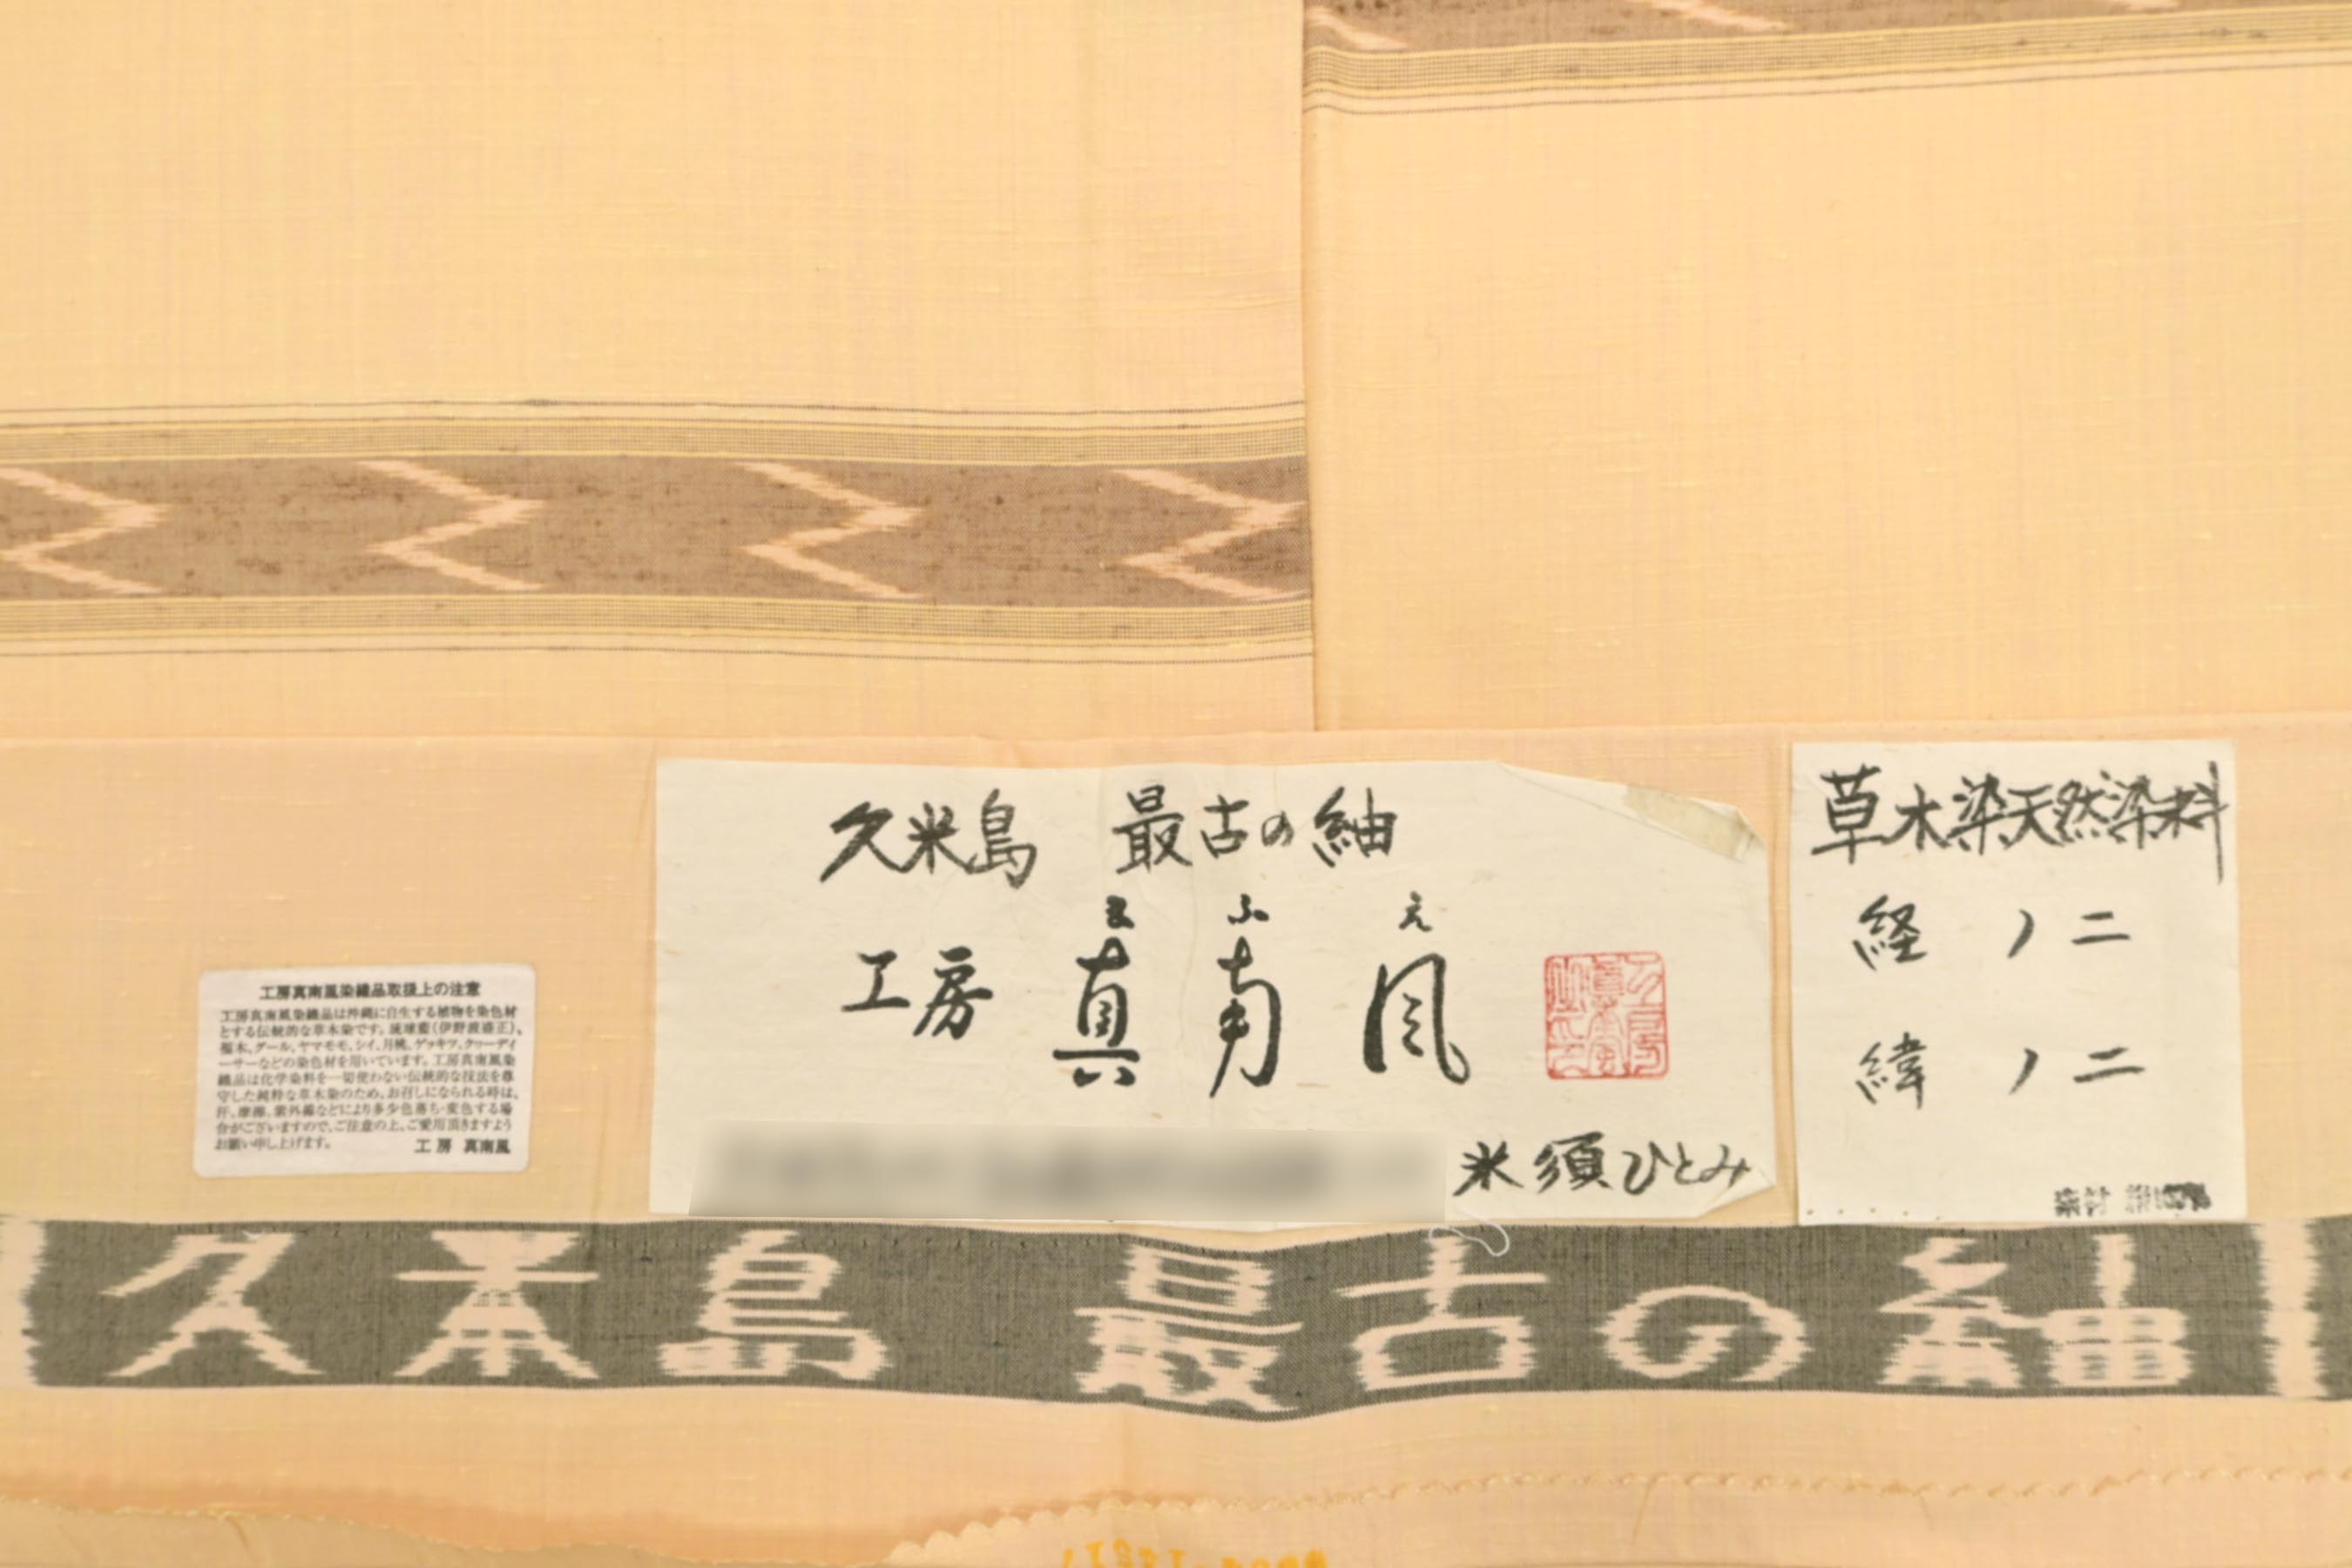 久米島 最古の紬
ま ふ え
工房 真南風
米須ひとみ
草木染天然染料
経 ノ二
緯 ノ二
工房真南風染織品取扱上の注意
工房真南風染織品は沖縄に自生する植物を染色材
とする伝統的な草木染です。琉球藍(伊野波盛正)、
福木、グール、ヤマモモ、シイ、月桃、ゲッキツ、クゥーディ
ーサーなどの染色材を用いています。工房真南風染
織品は化学染料を一切使わない伝統的な技法を尊
守した純粋な草木染のため、お召しになられる時は、
汗、摩擦、紫外線などにより多少色落ち・変色する場
合がございますので、ご注意の上、ご愛用頂きますよう
お願い申し上げます。 工房 真南風
久米島 最古の紬